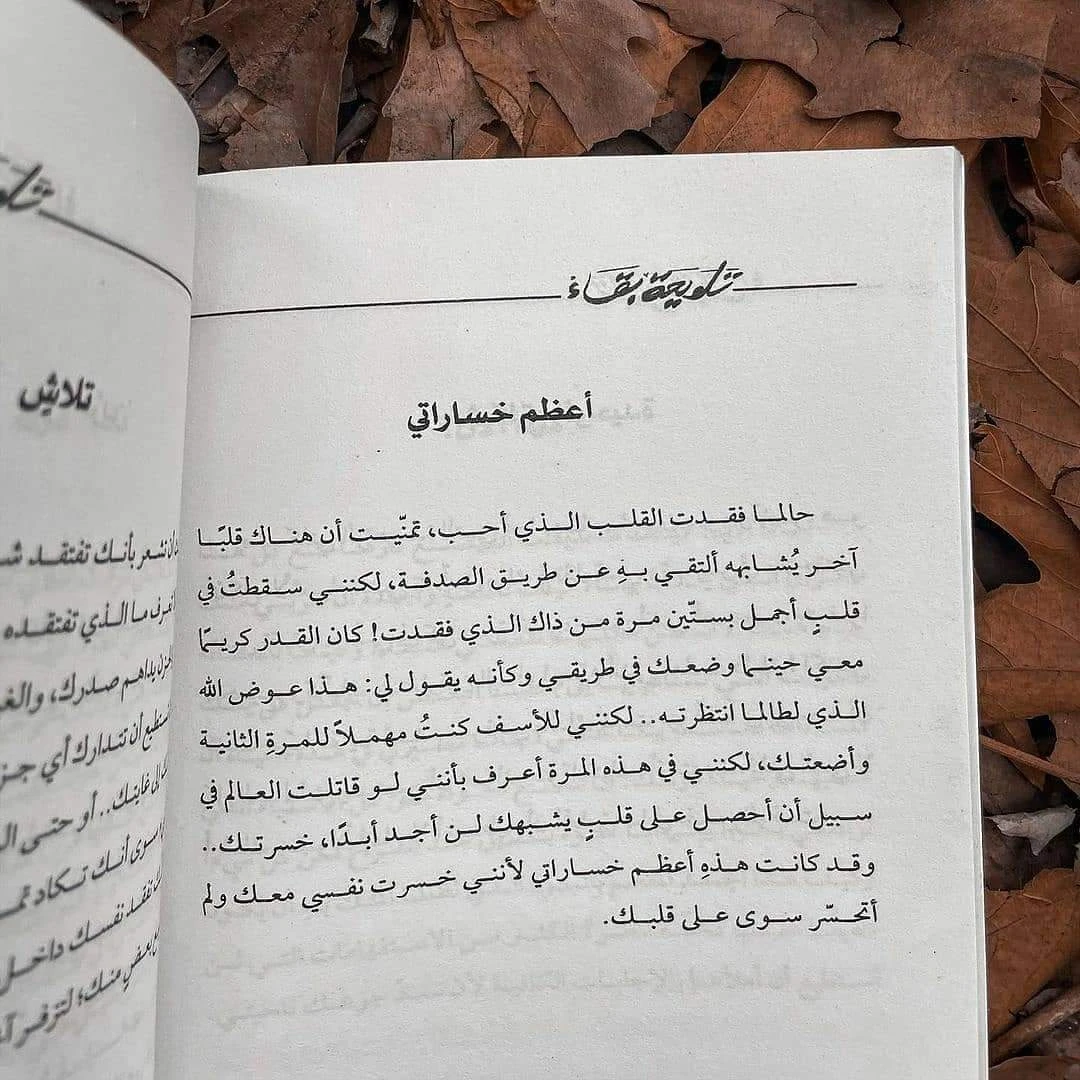 تلويحة بقاء
أعظم خساراتي
حالما فقدت القلب الذي أحب، تمنّيت أن هناك قلبًا
آخر يُشابهه ألتقي بهِ عن طريق الصدفة، لكنني سقطتُ في
قلبٍ أجمل بستّين مرة من ذاك الذي فقدت! كان القدر كريمًا
معي حينما وضعك في طريقي وكأنه يقول لي: هذا عوض الله
الذي لطالما انتظرته.. لكنني للأسف كنتُ مهملاً للمرةِ الثانية
وأضعتك، لكنني في هذه المرة أعرف بأنني لو قاتلت العالم في
سبيل أن أحصل على قلبٍ يشبهك لن أجد أبدًا، خسرتك..
وقد كانت هذهِ أعظم خساراتي لأنني خسرت نفسي معك ولم
أتحسّر سوى على قلبك.
تلاشٍ
أن تشعر بأنك تفتقد
ما الذي تفتقده
يداهم صدرك،
أن تتدارك أي
غايتك.. أو حتى
سوى أنك تكاد
تفقد نفسك داخل
منك؛ لتزفر